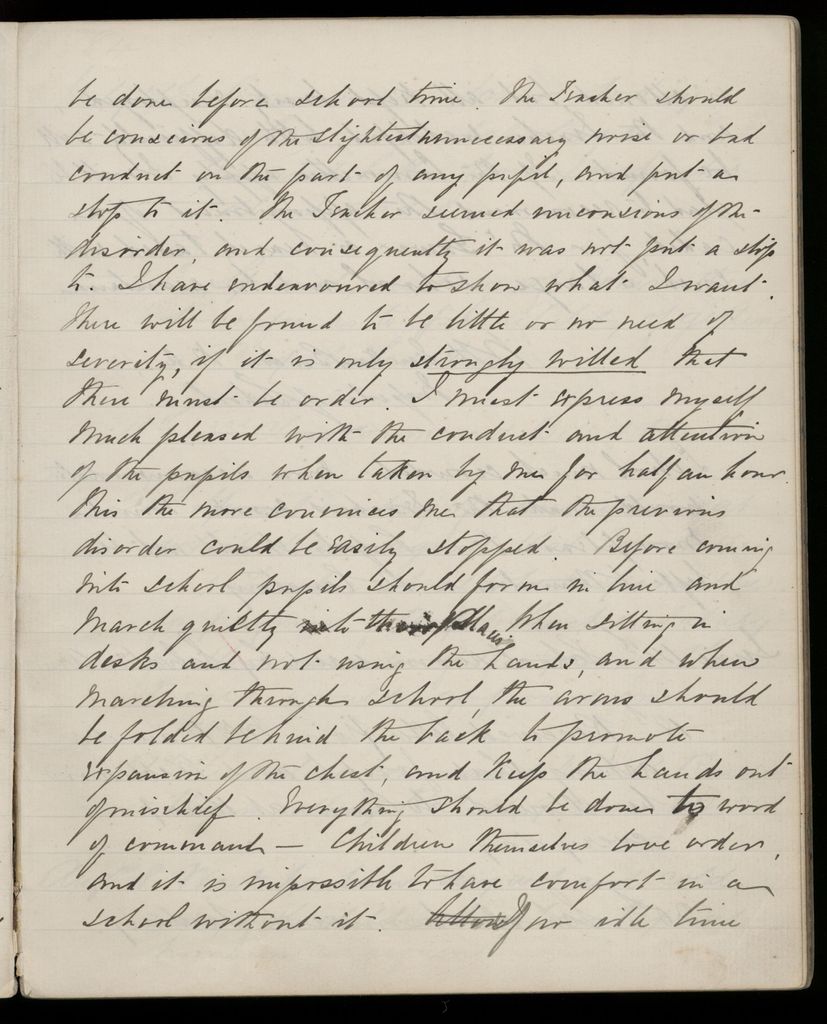 be done before school time. The Teacher should
be conscious of the slightest unnecessary noise or bad
conduct on the part of any pupil, and put a
stop to it. The Teacher seemed unconscious of the
disorder, and consequently it was not put a stop
to. I have endeavoured to show what I want.
There will be found to be little or no need of
severity, if it is only strongly willed that
there must be order. I must express myself
much pleased with the conduct and attention
of the pupils when taken by me for half an hour.
This the more convinces me that the previous
disorder could be easily stopped. Before coming
into school pupils should form in line and
march quietly into their places. When sitting in
desks and not using the hands, and when
marching through school, the arms should
be folded behind the back to promote
expansion of the chest, and keep the hands out
of mischief. Everything should be done to word
of command — Children themselves love order,
and it is impossible to have comfort in a
school without it. If no idle time